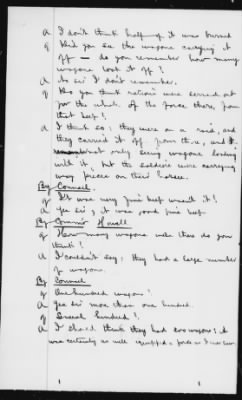 A I don't think half of it was burned
Q Did you see the wagons carrying it
off — do you remember how many
wagons took it off?
A No sir I don't remember.
Q Do you think rations were served out
for the whole of the force there, from
that beef?
A I think so; they were on a raid, and
they carried it off from there, and I
remember not only seeing wagons loading
with it, but the soldiers were carrying
away pieces on their horses.
By Counsel.
Q It was very fine beef wasn't it?
A Yes sir; it was good fine beef.
By Comm'r Howell
Q How many wagons were there do you
think?
A I couldn't say; they had a large number
of wagons.
By Counsel
Q One hundred wagons?
A Yes sir more than one hundred.
Q Several hundred?
A I should think they had 200 wagons; it
was certainly as well equipped a force as I ever saw.